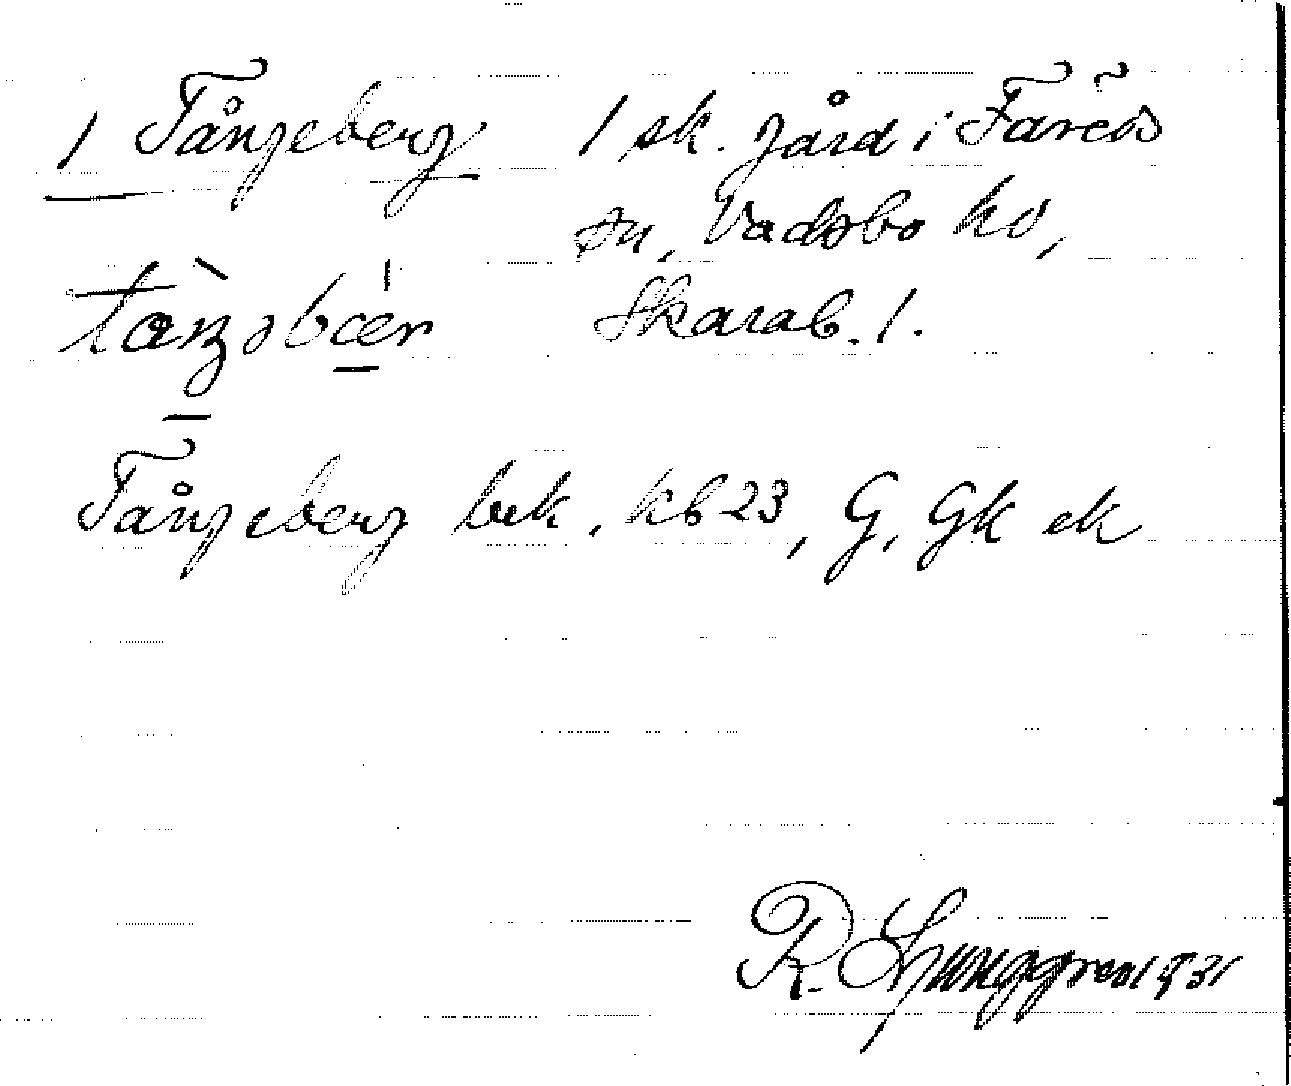 1 Tångeberg 1 sk. gård i Färeds
sn, Vadsbo hd,
Skarab. l.
Tångeberg bek. kb 23, G, Gk ek
R. Ljunggren 1931